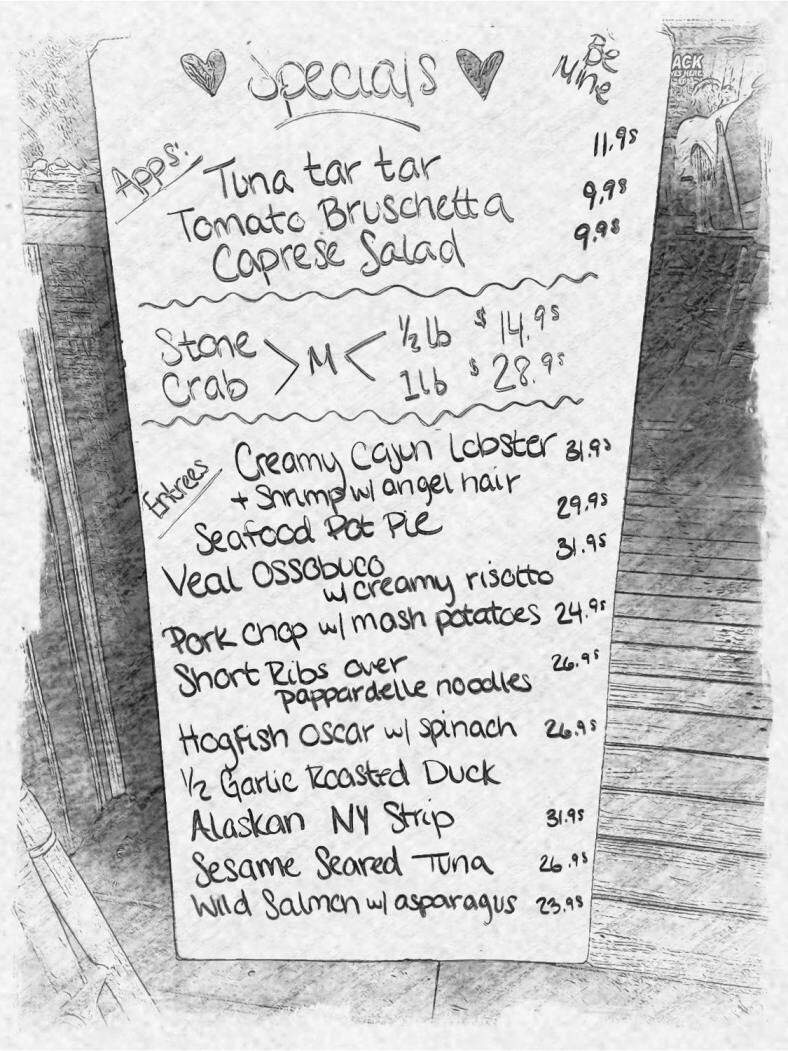 Specials
Be Mine
Apps:
Tuna tar tar 11.95
Tomato Bruschetta 9.95
Caprese Salad 9.95
Stone Crab > M < 1/2 lb $14.95
1 lb $28.95
Entrees
Creamy Cajun Lobster 31.95
+ Shrimp w/ angel hair
Seafood Pot Pie 29.95
Veal Ossobuco 31.95
w/ creamy risotto
Pork Chop w/ mash potatoes 24.95
Short Ribs over 26.95
pappardelle noodles
Hogfish Oscar w/ spinach 26.95
1/2 Garlic Roasted Duck
Alaskan NY Strip 31.95
Sesame Seared Tuna 26.95
Wild Salmon w/ asparagus 23.95